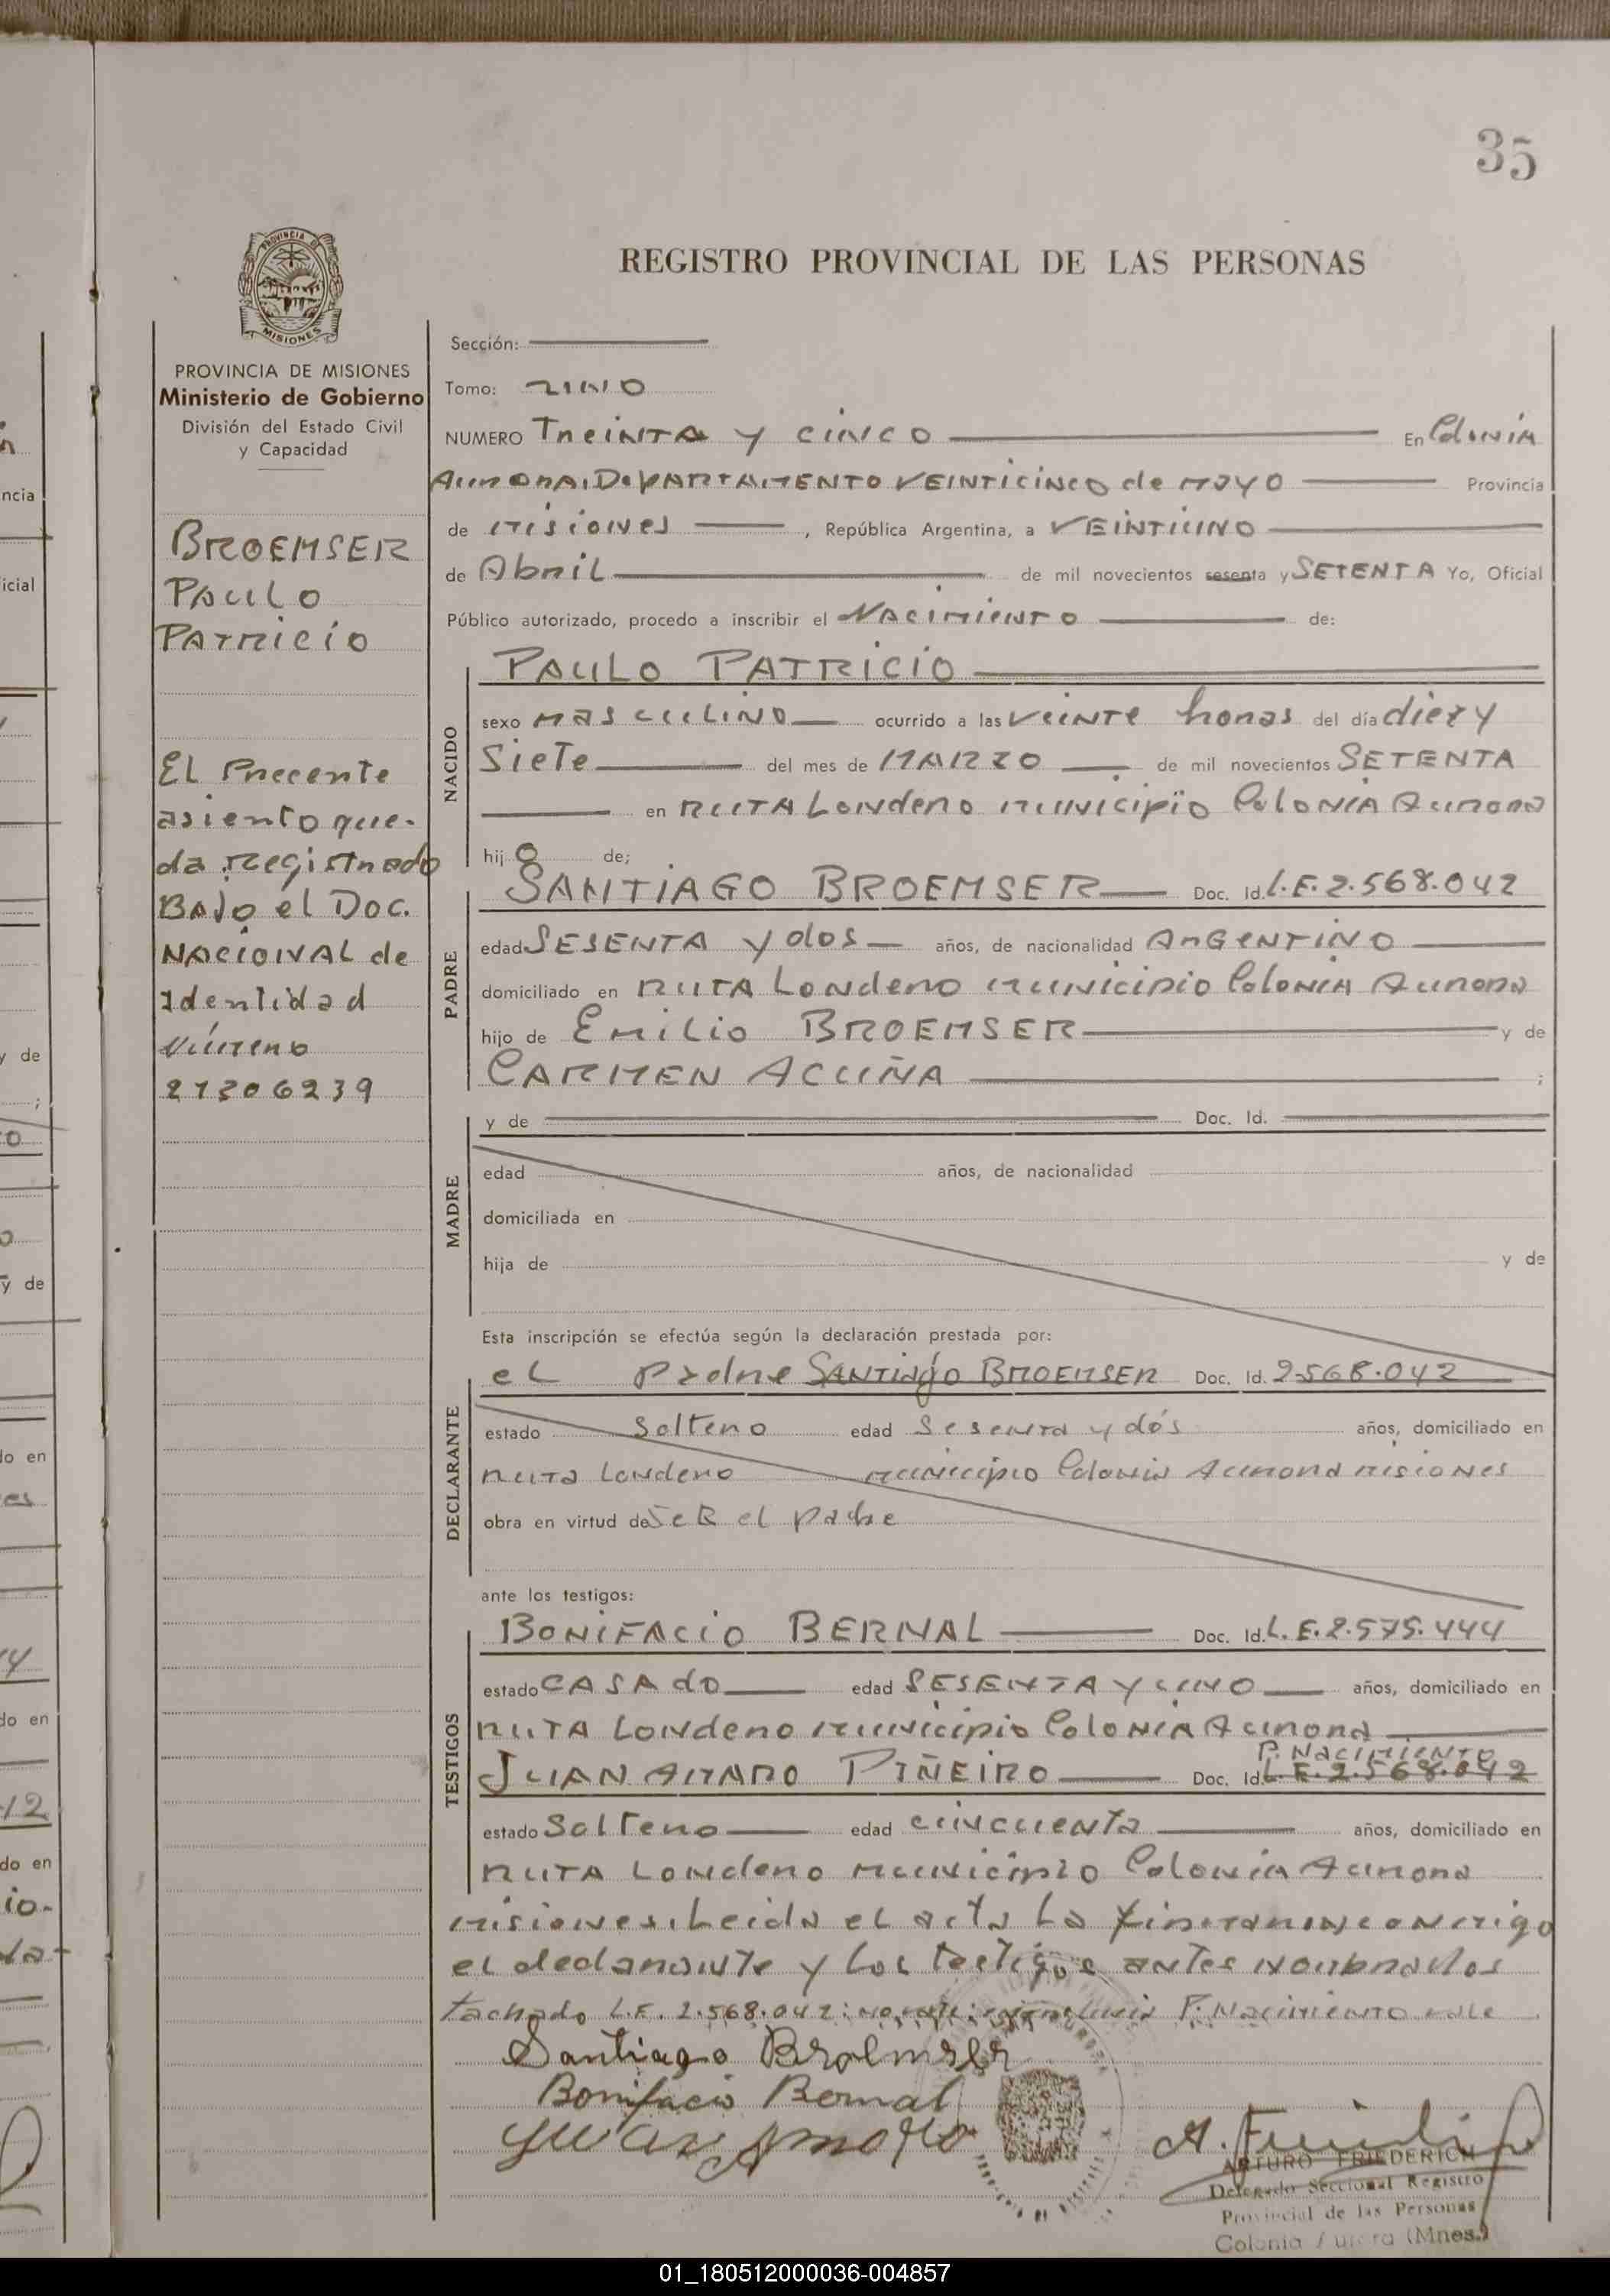 35
REGISTRO PROVINCIAL DE LAS PERSONAS
PROVINCIA DE
MISIONES
PROVINCIA DE MISIONES
Ministerio de Gobierno
División del Estado Civil
y Capacidad
BROEMSER
PAULO
PATRICIO
El Precente
asiento que-
da registrado
BAJO el Doc.
NACIONAL de
Identidad
Número
21306239
Sección:
Tomo: UNO
NUMERO Treinta y cinco En Colonia
Aurora, Departamento VEINTICINCO de MAYO Provincia
de Misiones, República Argentina, a VEINTIUNO
de Abril de mil novecientos sesenta y SETENTA Yo, Oficial
Público autorizado, procedo a inscribir el Nacimiento de:
NACIDO
PAULO PATRICIO
sexo masculino ocurrido a las veinte horas del día diez y
siete del mes de MARZO de mil novecientos SETENTA
en RUTA Londero municipio Colonia Aurora
hijo de;
PADRE
SANTIAGO BROEMSER Doc. Id. L.E. 2.568.042
edad SESENTA y dos años, de nacionalidad ARGENTINO
domiciliado en RUTA Londero municipio Colonia Aurora
hijo de Emilio BROEMSER y de
CARMEN ACUÑA ;
MADRE
y de Doc. Id.
edad años, de nacionalidad
domiciliada en
hija de y de
Esta inscripción se efectúa según la declaración prestada por:
DECLARANTE
el padre SANTIAgO BROEMSER Doc. Id. 2.568.042
estado soltero edad sesenta y dós años, domiciliado en
ruta Londero municipio Colonia Aurora misiones
obra en virtud de SER el padre
ante los testigos:
TESTIGOS
BONIFACIO BERNAL Doc. Id. L.E. 2.575.444
estado CASAdO edad SESENTA y UNO años, domiciliado en
RUTA Londero municipio Colonia Aurora
P. NACIMIENTO
JUAN AMARO PIÑEIRO Doc. Id. L.E. 2.568.042
estado Soltero edad cincuenta años, domiciliado en
RUTA Londero municipio Colonia Aurora
misiones. Leida el acta la firman conmigo
el declarante y los testigos antes nombrados
tachado L.F. 2.568.042: no vale: P. Nacimiento vale
Santiago Broemser
Bonifacio Bernal
Juan Amaro
ARTURO FRIEDERICH
Delegado Seccional Registro
Provincial de las Personas
Colonia Aurora (Mnes.)
ncia
icial
y de
y de
do en
do en
do en
01_180512000036-004857